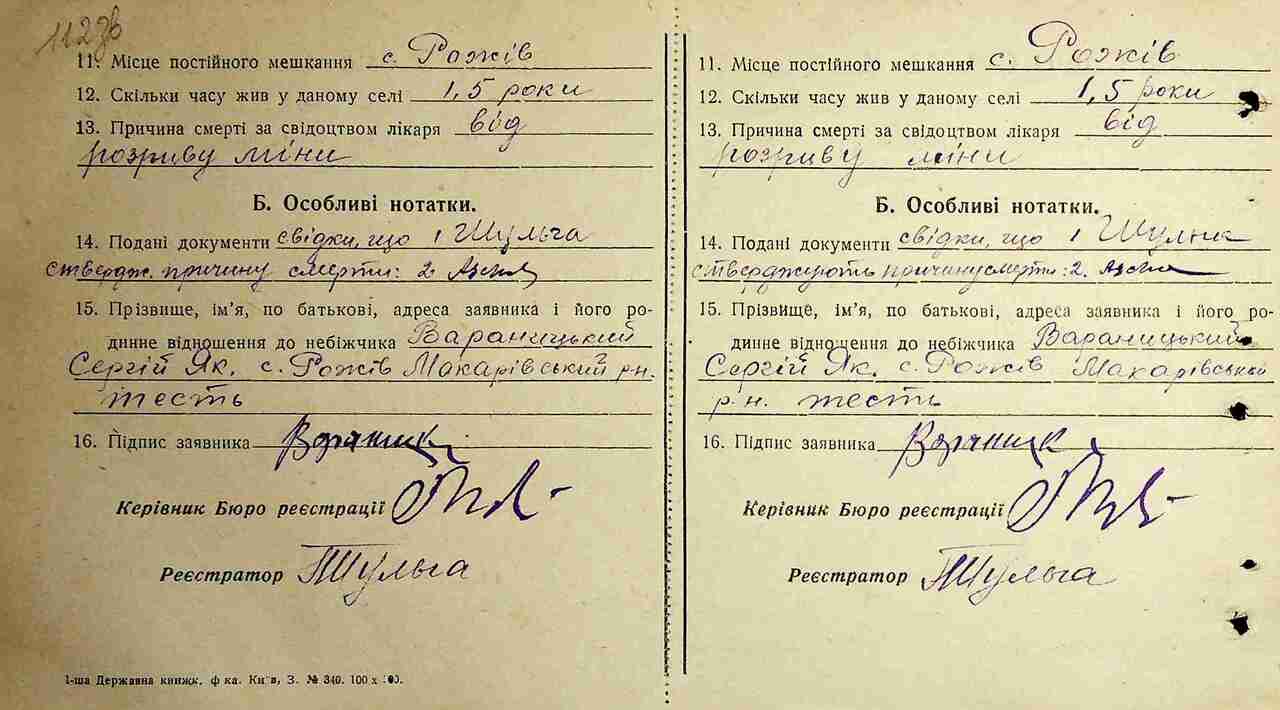 112зв
11. Місце постійного мешкання с. Рожів
12. Скільки часу жив у даному селі 1,5 роки
13. Причина смерті за свідоцтвом лікаря від
розриву міни
Б. Особливі нотатки.
14. Подані документи свідки, що 1 Шульга
ствердж. причину смерти: 2.
15. Прізвище, ім’я, по батькові, адреса заявника і його ро-
динне відношення до небіжчика Вараницький
Сергій Як. с. Рожів Макарівський р-н.
тесть
16. Підпис заявника
Керівник Бюро реєстрації
Реєстратор Шульга
1-ша Державна книжк. ф-ка. Київ, З. № 340. 100 х 100.
11. Місце постійного мешкання с. Рожів
12. Скільки часу жив у даному селі 1,5 роки
13. Причина смерті за свідоцтвом лікаря від
розриву міни
Б. Особливі нотатки.
14. Подані документи свідки, що 1
стверджують причину смерти: 2.
15. Прізвище, ім’я, по батькові, адреса заявника і його ро-
динне відношення до небіжчика Вараницький
Сергій Як. с. Рожів Макарівський
р-н. тесть
16. Підпис заявника
Керівник Бюро реєстрації
Реєстратор Шульга